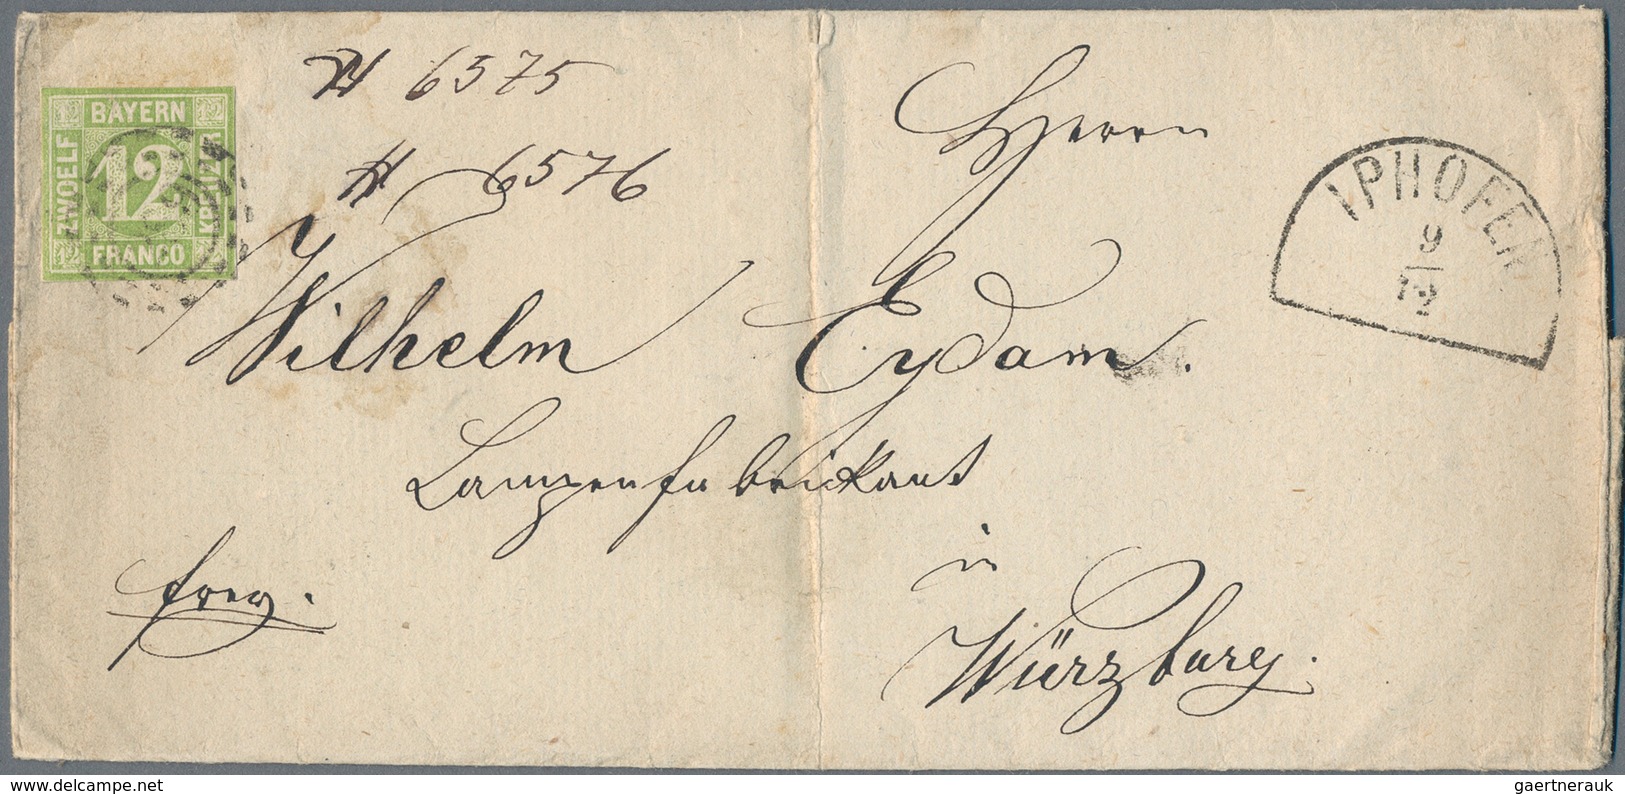 12 BAYERN 12
ZWOELF 12 KREUZER
12 FRANCO 12
6575
6576
Herrn
Wilhelm Eydam.
Lampenfabrikant
in
Würzburg.
frey.
IPHOFEN
9
12
gaertnerauk